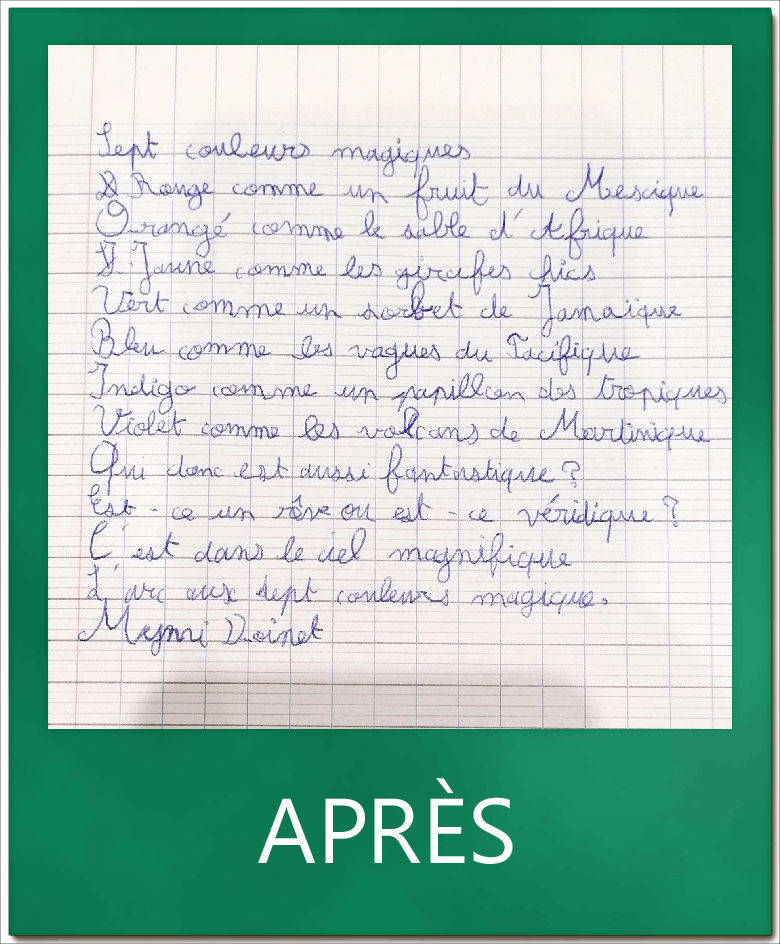 Sept couleurs magiques
Rouge comme un fruit du Mescique
Orangé comme le sable d'Afrique
Jaune comme les girafes chics
Vert comme un sorbet de Jamaïque
Bleu comme les vagues du Pacifique
Indigo comme un papillon des tropiques
Violet comme les volcans de Martinique
Qui donc est aussi fantastique ?
Est-ce un rêve ou est-ce véridique ?
C'est dans le ciel magnifique
L'arc aux sept couleurs magique.
Mymi Doinet
APRÈS